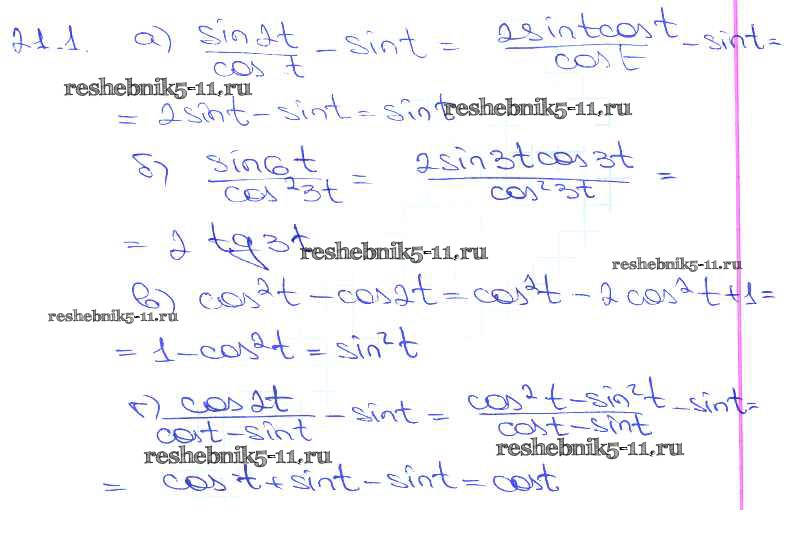 21.1. а) sin2t/cost − sint = 2sintcost/cost − sint =
reshebnik5-11.ru
= 2sint − sint = sint reshebnik5-11.ru
б) sin6t/cos²3t = 2sin3tcos3t/cos²3t =
= 2 tg3t reshebnik5-11.ru
reshebnik5-11.ru
в) cos²t − cos2t = cos²t − 2cos²t + 1 =
reshebnik5-11.ru
= 1 − cos²t = sin²t
г) cos2t/cost−sint − sint = cos²t − sin²t/cost − sint − sint =
reshebnik5-11.ru reshebnik5-11.ru
= cost + sint − sint = cost